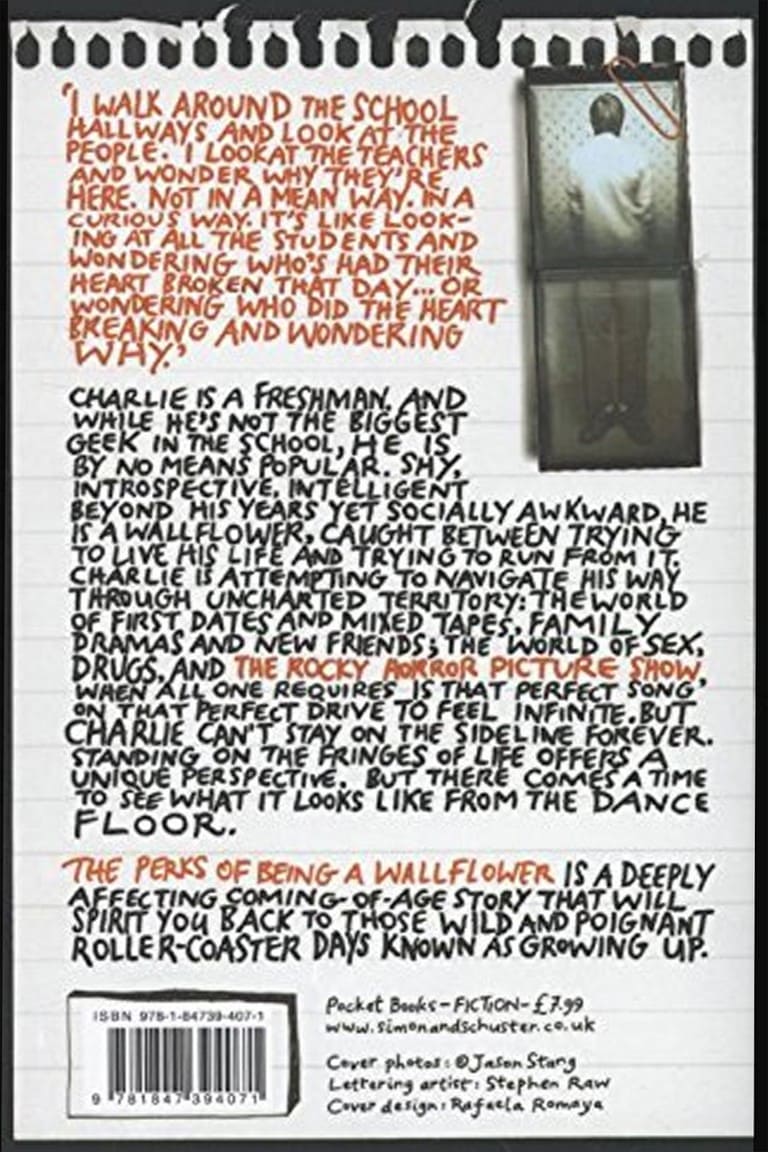 'I WALK AROUND THE SCHOOL
HALLWAYS AND LOOK AT THE
PEOPLE. I LOOKAT THE TEACHERS
AND WONDER WHY THEY'RE
HERE. NOT IN A MEAN WAY. IN A
CURIOUS WAY. IT'S LIKE LOOK-
ING AT ALL THE STUDENTS AND
WONDERING WHO'S HAD THEIR
HEART BROKEN THAT DAY... OR
WONDERING WHO DID THE HEART
BREAKING AND WONDERING
WHY.'
CHARLIE IS A FRESHMAN. AND
WHILE HE'S NOT THE BIGGEST
GEEK IN THE SCHOOL, HE IS
BY NO MEANS POPULAR. SHY,
INTROSPECTIVE, INTELLIGENT
BEYOND HIS YEARS YET SOCIALLY AWKWARD, HE
IS A WALLFLOWER, CAUGHT BETWEEN TRYING
TO LIVE HIS LIFE AND TRYING TO RUN FROM IT.
CHARLIE IS ATTEMPTING TO NAVIGATE HIS WAY
THROUGH UNCHARTED TERRITORY: THE WORLD
OF FIRST DATES AND MIXED TAPES, FAMILY
DRAMAS AND NEW FRIENDS; THE WORLD OF SEX,
DRUGS, AND THE ROCKY HORROR PICTURE SHOW,
WHEN ALL ONE REQUIRES IS THAT PERFECT SONG
ON THAT PERFECT DRIVE TO FEEL INFINITE. BUT
CHARLIE CAN'T STAY ON THE SIDELINE FOREVER.
STANDING ON THE FRINGES OF LIFE OFFERS A
UNIQUE PERSPECTIVE. BUT THERE COMES A TIME
TO SEE WHAT IT LOOKS LIKE FROM THE DANCE
FLOOR.
THE PERKS OF BEING A WALLFLOWER IS A DEEPLY
AFFECTING COMING-OF-AGE STORY THAT WILL
SPIRIT YOU BACK TO THOSE WILD AND POIGNANT
ROLLER-COASTER DAYS KNOWN AS GROWING UP.
ISBN 978-1-84739-407-1
9 781847 394071
Pocket Books-FICTION-£7.99
www.simonandschuster.co.uk
Cover photos: © Jason Stang
Lettering artist: Stephen Raw
Cover design: Rafaela Romaya